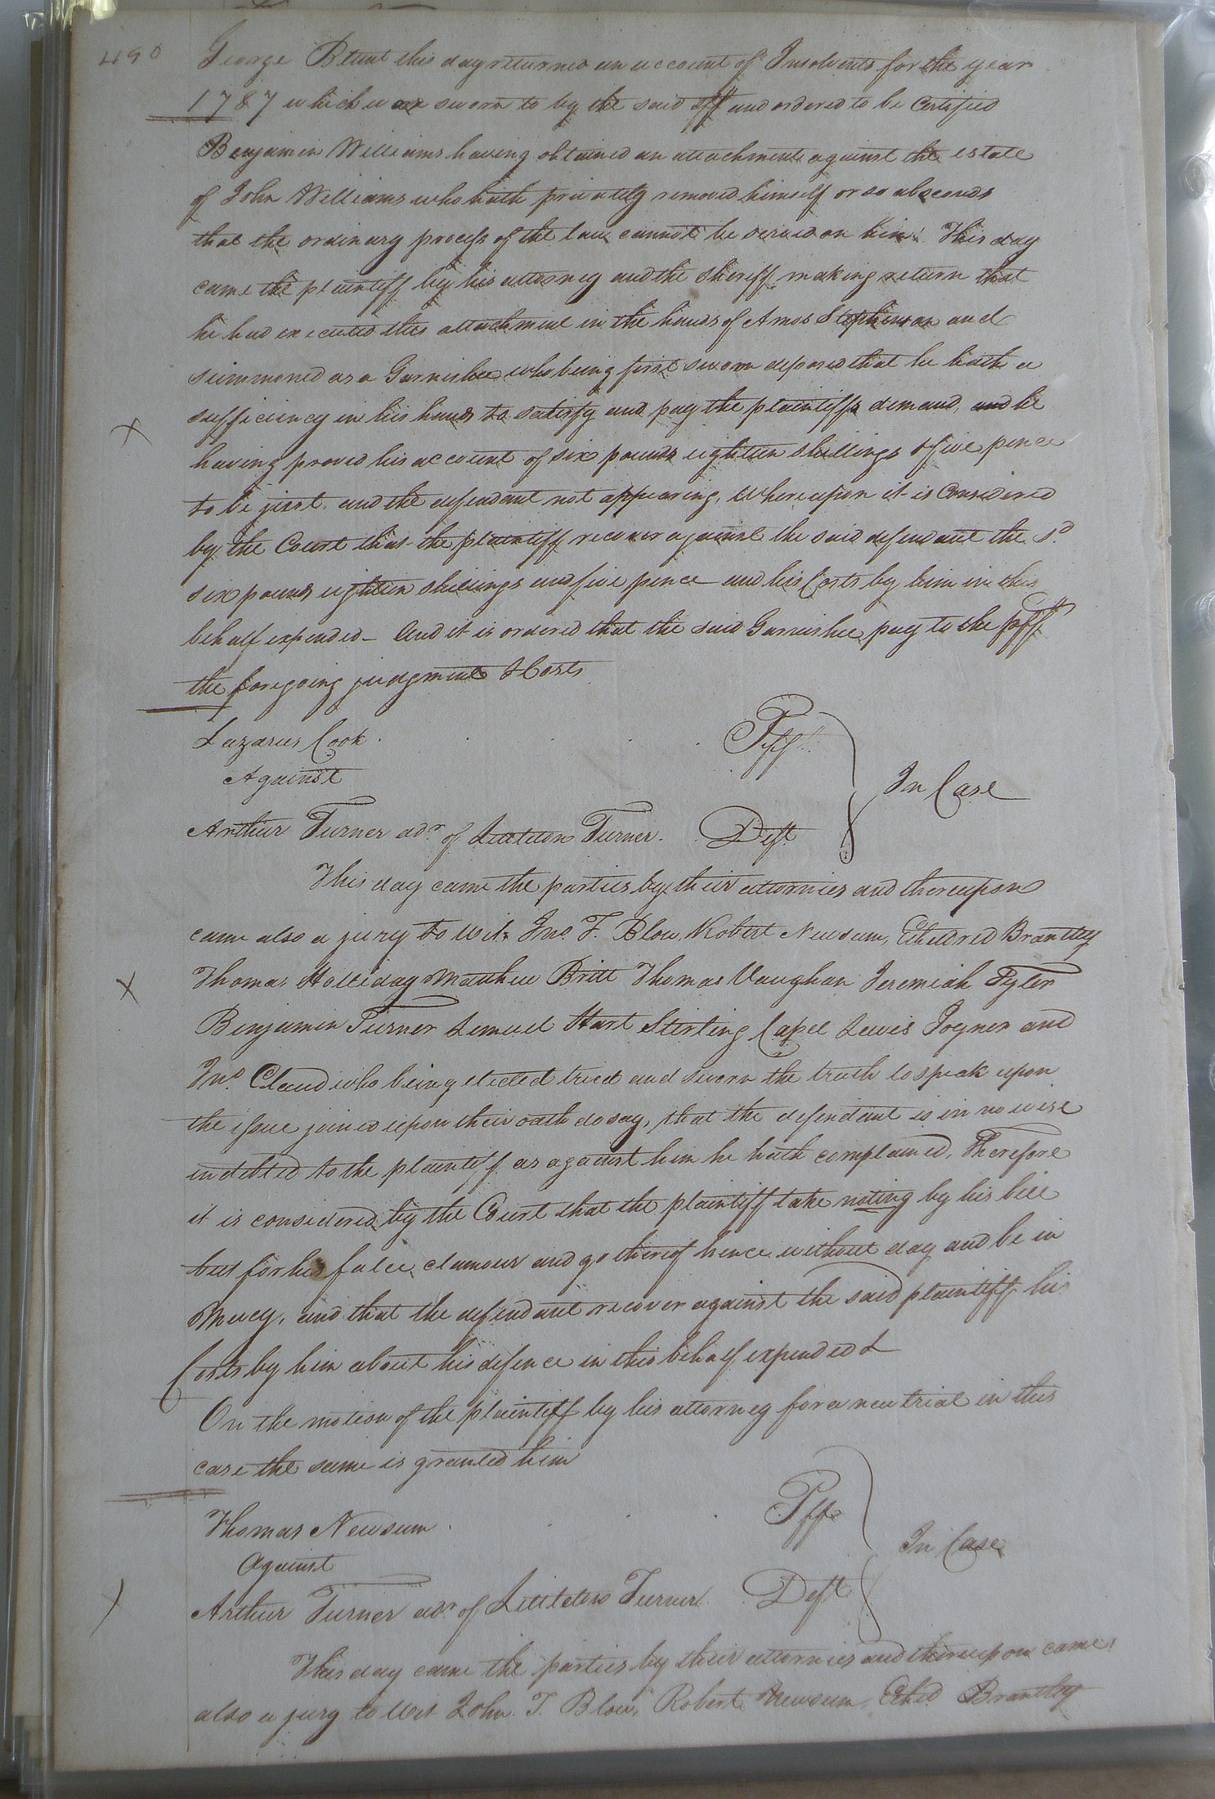 490
George Blunt this day returned an account of Insolvents for the year
1787 which was sworn to by the said and ordered to be Certified
Benjamin Williams having obtained an attachment against the estate
of John Williams who hath privately removed himself or so absconds
that the ordinary process of the law cannot be served on him. This day
came the plaintiff by his attorney and the Sheriff making return that
he had executed this attachment in the hands of Amos Stephenson and
summoned as a Garnishee who being first sworn deposed that he hath a
sufficiency in his hands to satisfy and pay the plaintiffs demand, and he
having proved his account of six pounds eighteen shillings & five pence
to be just. and the defendant not appearing, Whereupon it is Considered
by the Court that the plaintiff recover against the said defendant the sd
six pounds eighteen shillings and five pence and his Costs by him in this
behalf expended - And it is ordered that the said Garnishee pay to the plff
the foregoing judgment & Costs
Lazarus Cook . . . . Plff
Against
In Case
Arthur Turner adr of Littleton Turner. Deft
This day came the parties by their attornies and thereupon
came also a jury to wit Jno. T. Blow, Robert Newsum, Etheldred Brantley
Thomas Holliday Matthew Britt Thomas Vaughan Jeremiah Tyler
Benjamin Turner Lemuel Hart Sterling Capel Lewis Joyner and
Jno. Claud who being elected tried and sworn the truth to speak upon
the issue joined upon their oath do say, that the defendant is in no wise
indebted to the plaintiff as against him he hath complained, Therefore
it is considered by the Court that the plaintiff take noting by his bill
but for his false clamour and go thereof hence without day and be in
Mercy, and that the defendant recover against the said plaintiff his
Costs by him about his defence in this behalf expended &
On the motion of the plaintiff by his attorney for a new trial in this
case the same is granted him
Thomas Newsum . . . Plff
Against
In Case
Arthur Turner adr of Littleton Turner. Deft
This day came the parties by their attornies and thereupon came
also a jury to wit John T. Blow, Robert Newsum, Ethd Brantley